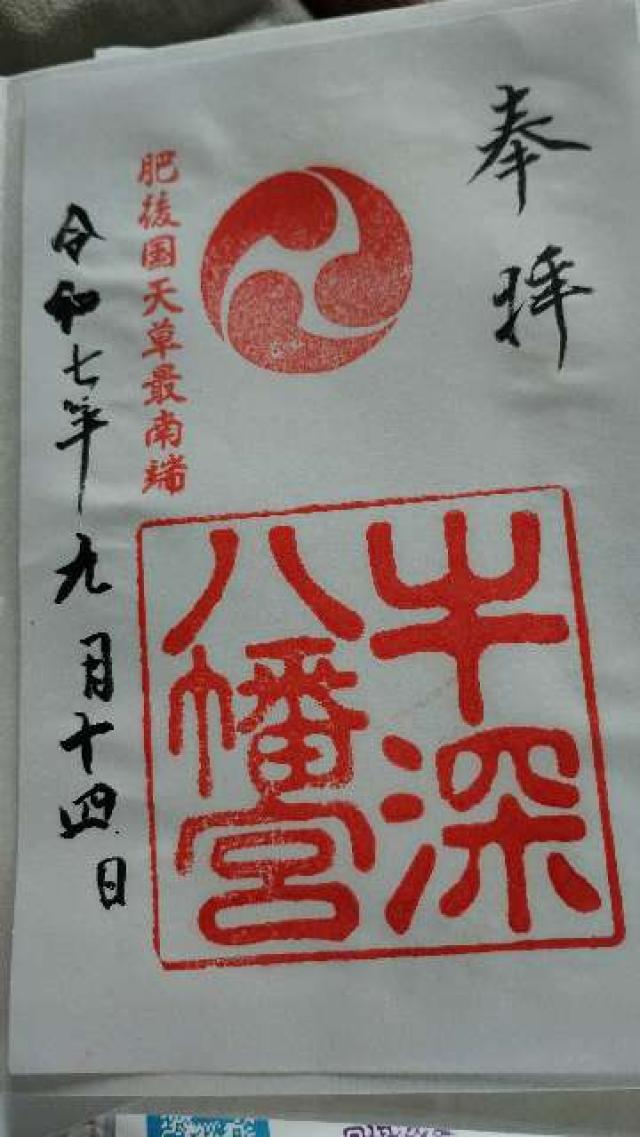 奉拝
肥後国天草最南端
牛深
八幡宮
令和七年九月十四日